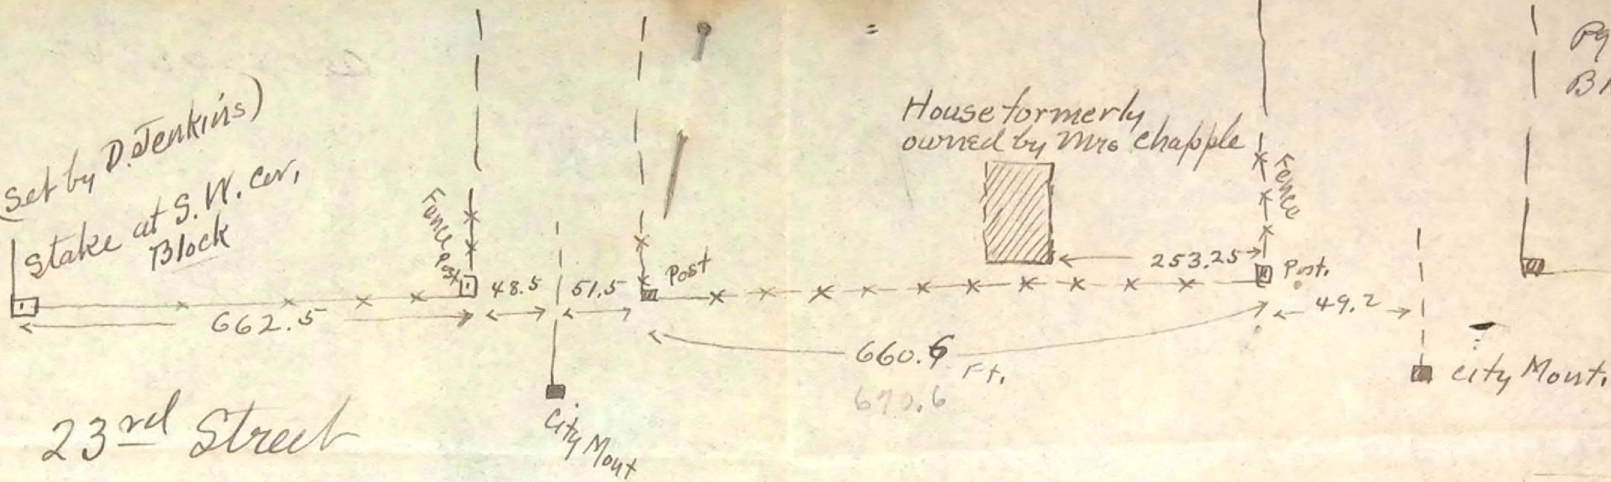 (Set by D. Jenkins)
Stake at S. W. Cor,
Block
Fence
Post
48.5
51.5
Post
662.5
House formerly
owned by Mrs. Chapple
Fence
253.25
Post.
49.2
660.6 Ft.
City Mont.
City Mont
23rd Street